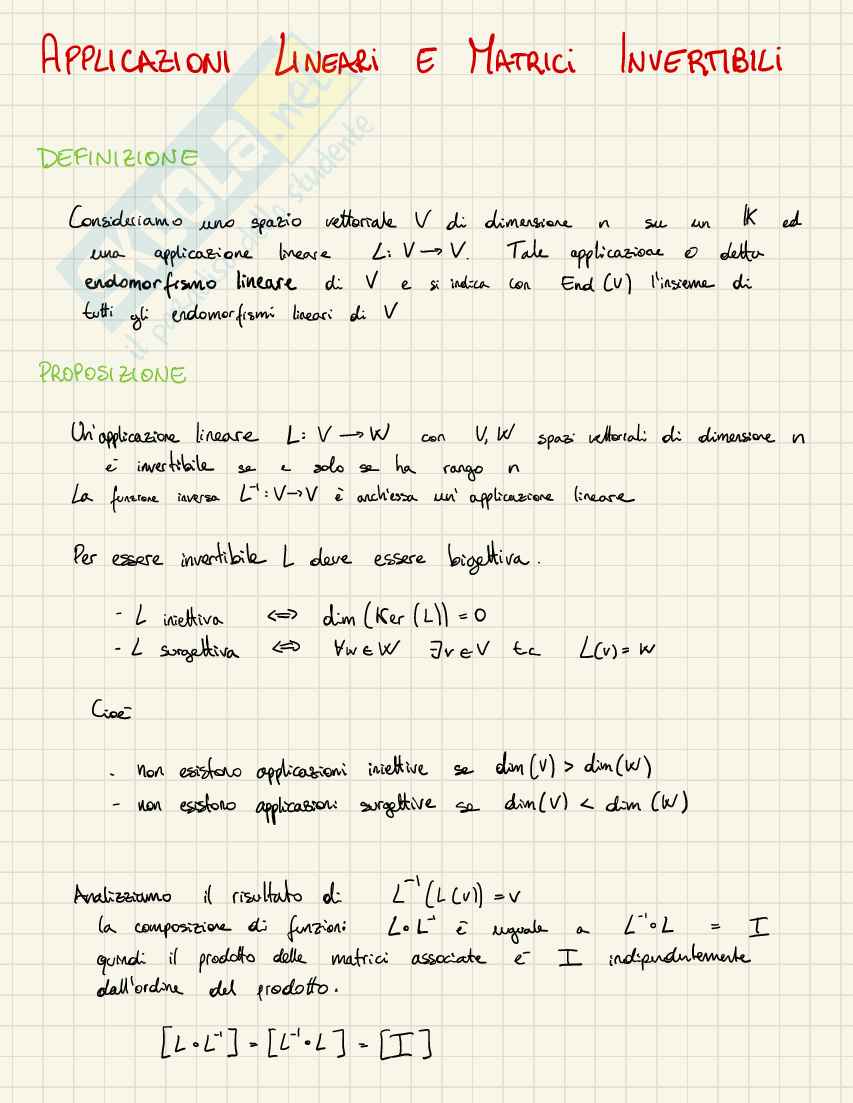 APPLICAZIONI LINEARI E MATRICI INVERTIBILI
SKUOLA.net
il paradiso dello studente
DEFINIZIONE
Consideriamo uno spazio vettoriale V di dimensione n su un K ed
una applicazione lineare L: V → V. Tale applicazione è detta
endomorfismo lineare di V e si indica con End (V) l'insieme di
tutti gli endomorfismi lineari di V
PROPOSIZIONE
Un'applicazione lineare L: V → W con V, W spazi vettoriali di dimensione n
è invertibile se e solo se ha rango n
La funzione inversa L⁻¹: V → V è anch'essa un'applicazione lineare
Per essere invertibile L deve essere bigettiva.
- L iniettiva ⇔ dim (Ker (L)) = 0
- L surgettiva ⇔ ∀w ∈ W ∃v ∈ V t.c. L(v) = w
Cioè
- non esistono applicazioni iniettive se dim(V) > dim(W)
- non esistono applicazioni surgettive se dim(V) < dim (W)
Analizziamo il risultato di L⁻¹(L(v)) = v
la composizione di funzioni L∘L⁻¹ è uguale a L⁻¹∘L = I
quindi il prodotto delle matrici associate è I indipendentemente
dall'ordine del prodotto.
[L∘L⁻¹] = [L⁻¹∘L] = [I]